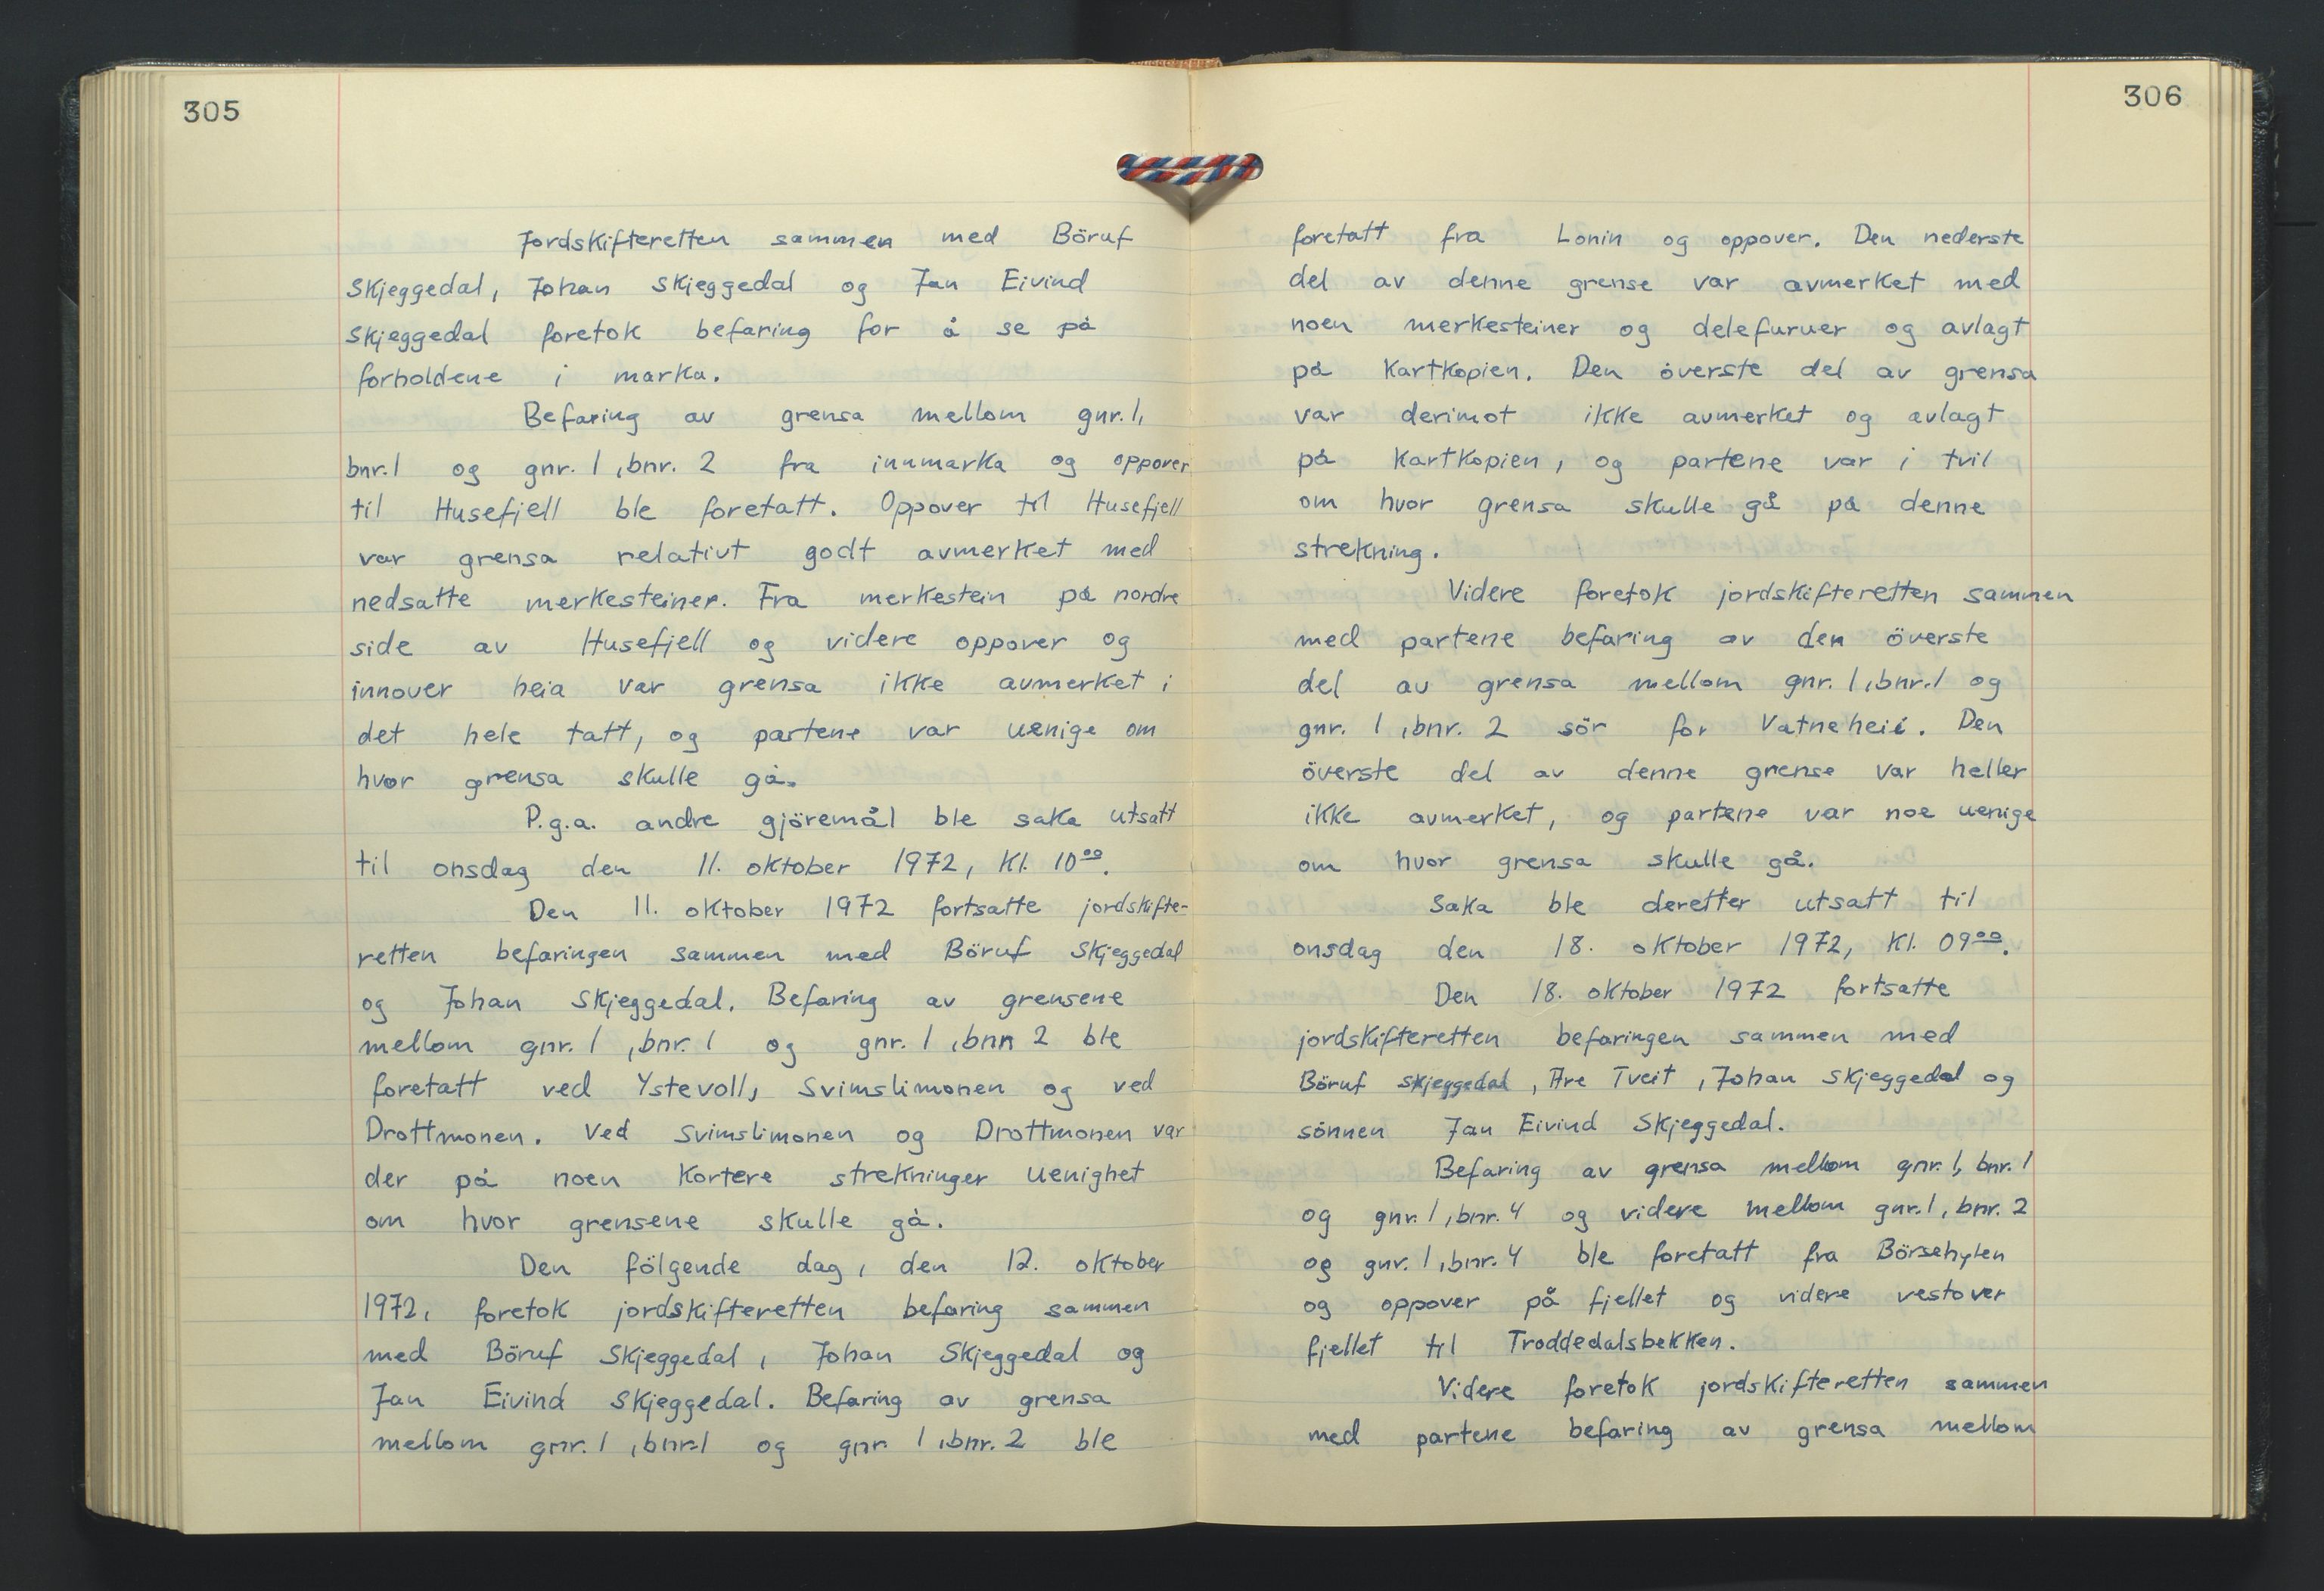 305
Jordskifteretten sammen med Böruf
Skjeggedal, Johan Skjeggedal og Jan Eivind
Skjeggedal foretok befaring for å se på
forholdene i marka.
Befaring av grensa mellom gnr. 1,
bnr. 1 og gnr. 1, bnr. 2 fra innmarka og oppover
til Husefjell ble foretatt. Oppover til Husefjell
var grensa relativt godt avmerket med
nedsatte merkesteiner. Fra merkestein på nordre
side av Husefjell og videre oppover og
innover heia var grensa ikke avmerket i
det hele tatt, og partene var uenige om
hvor grensa skulle gå.
P.g.a. andre gjöremål ble saka utsatt
til onsdag den 11. oktober 1972, kl. 10⁰⁰.
Den 11. oktober 1972 fortsatte jordskifte-
retten befaringen sammen med Böruf Skjeggedal
og Johan Skjeggedal. Befaring av grensene
mellom gnr. 1, bnr. 1 og gnr. 1, bnr. 2 ble
foretatt ved Ystevoll, Svimslimonen og ved
Drottmonen. Ved Svimslimonen og Drottmonen var
der på noen kortere strekninger uenighet
om hvor grensene skulle gå.
Den fölgende dag, den 12. oktober
1972, foretok jordskifteretten befaring sammen
med Böruf Skjeggedal, Johan Skjeggedal og
Jan Eivind Skjeggedal. Befaring av grensa
mellom gnr. 1, bnr. 1 og gnr 1, bnr. 2 ble
306
foretatt fra Lonin og oppover. Den nederste
del av denne grense var avmerket med
noen merkesteiner og delefuruer og avlagt
på kartkopien. Den överste del av grensa
var derimot ikke avmerket og avlagt
på kartkopien, og partene var i tvil
om hvor grensa skulle gå på denne
strekning.
Videre foretok jordskifteretten sammen
med partene befaring av den överste
del av grensa mellom gnr. 1, bnr. 1 og
gnr. 1, bnr. 2 sör for Vatneheii. Den
överste del av denne grense var heller
ikke avmerket, og partene var noe uenige
om hvor grensa skulle gå.
Saka ble deretter utsatt til
onsdag den 18. oktober 1972, kl. 09⁰⁰.
Den 18. oktober 1972 fortsatte
jordskifteretten befaringen sammen med
Böruf Skjeggedal, Are Tveit, Johan Skjeggedal og
sönnen Jan Eivind Skjeggedal.
Befaring av grensa mellom gnr. 1, bnr. 1
og gnr. 1, bnr. 4 og videre mellom gnr. 1, bnr. 2
og gnr. 1, bnr. 4 ble foretatt fra Börsehylen
og oppover på fjellet og videre vestover
fjellet til Troddedalsbekken.
Videre foretok jordskifteretten sammen
med partene befaring av grensa mellom